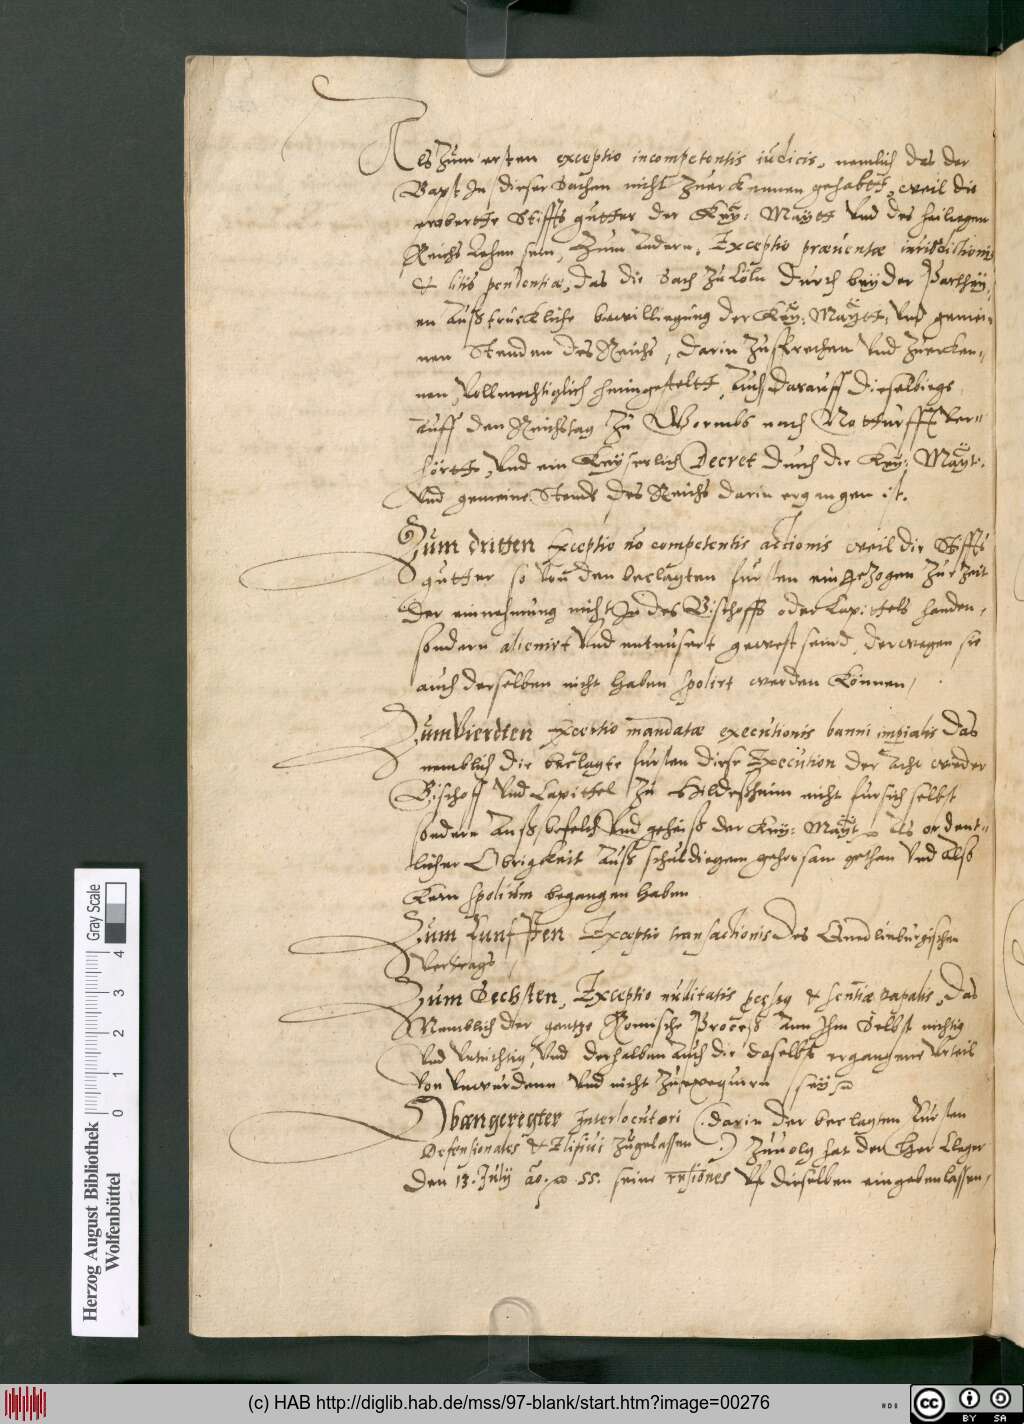 Als Zum ersten exceptio incompetentis iudicis, nemlich das der
Bapst In dieser Sachen nicht Zuerkennen gehabtt, weil die
eroberthe Stiffts gutter der Key: Maytt Vnd des heiliegen
Reichs Lehen sein, Zum Andern, Exceptio præuentæ iurisdictionis
& litis pendentiæ, das die Sach Zu Cöln durch beyder Parthey-
en Außtruckliche bewilliegung der Key: Maytt, Vnd gemei-
nen Stenden des Reichs, darin Zusprechen Vnd Zuerken-
nen Vollmechtiglich heimgesteltt, Auch darauff dieselbiege
Auff den Reichstag Zu Wormbs nach Notturfft Ver-
hörtt, Vnd ein Keyserlich Decret durch die Key: Mayt:
Vnd gemeine Stende des Reichs darin ergangen ist.
Zum dritten Exceptio no competentis actionis weil die Stiffts
gutter so Von den beclagten fursten eingezogen Zur Zeit
der einnehmung nicht In des Bischoffs oder Capittels handen,
sondern alienirt Vnd enteusert gewest seind, derwegen sie
auch derselben nicht haben spolirt werden Können,
Zum Vierdten Exceptio mandatæ executionis banni imperialis das
nemblich die beclagte fursten diese Execution der Acht wider
Bischoff Vnd Capittel Zu Hildeßheim nicht fur sich selbst
sondern Auß befelch Vnd geheiß der Key: Mayt Als ordent-
licher Obrigkeit Auß schuldiegem gehorsam gethan Vnd Also
Kein spolium begangen haben
Zum Funfften Exceptio transactionis des Quedlinburgischen
Vertrags
Zum Sechsten, Exceptio nullitatis & sententiæ papalis, das
Nemblich der gantze Romische Proceß Ann Ihm Selbst nichtig
Vnd Vntuchtig, Vnd derhalben Auch die daselbst ergangene Vrteil
Von Vnwurden Vnd nicht Zuexequirn sey
Obangeregter Interlocutori (: darin der beclagten Fursten
Defensionales & Elisiui Zugelassen :) Zuuolg hat der Her Cleger
den 13. July ao: 55. seine Vf dieselben eingeben lassen,
Herzog August Bibliothek
Wolfenbüttel
0 1 2 3 4
Gray Scale
(c) HAB http://diglib.hab.de/mss/97-blank/start.htm?image=00276
cc BY SA